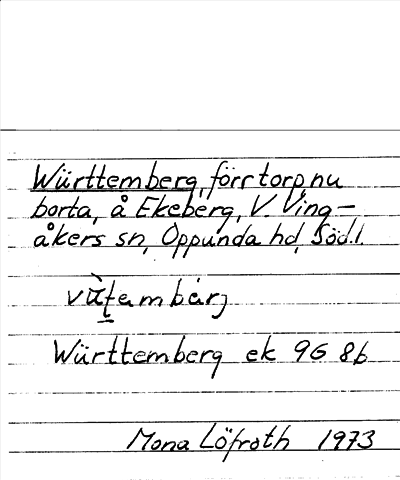 Württemberg, förr torp, nu
borta, å Ekeberg, V. Ving-
åkers sn, Oppunda hd, Söd.l.
Württemberg ek 9G 8b
Mona Löfroth 1973